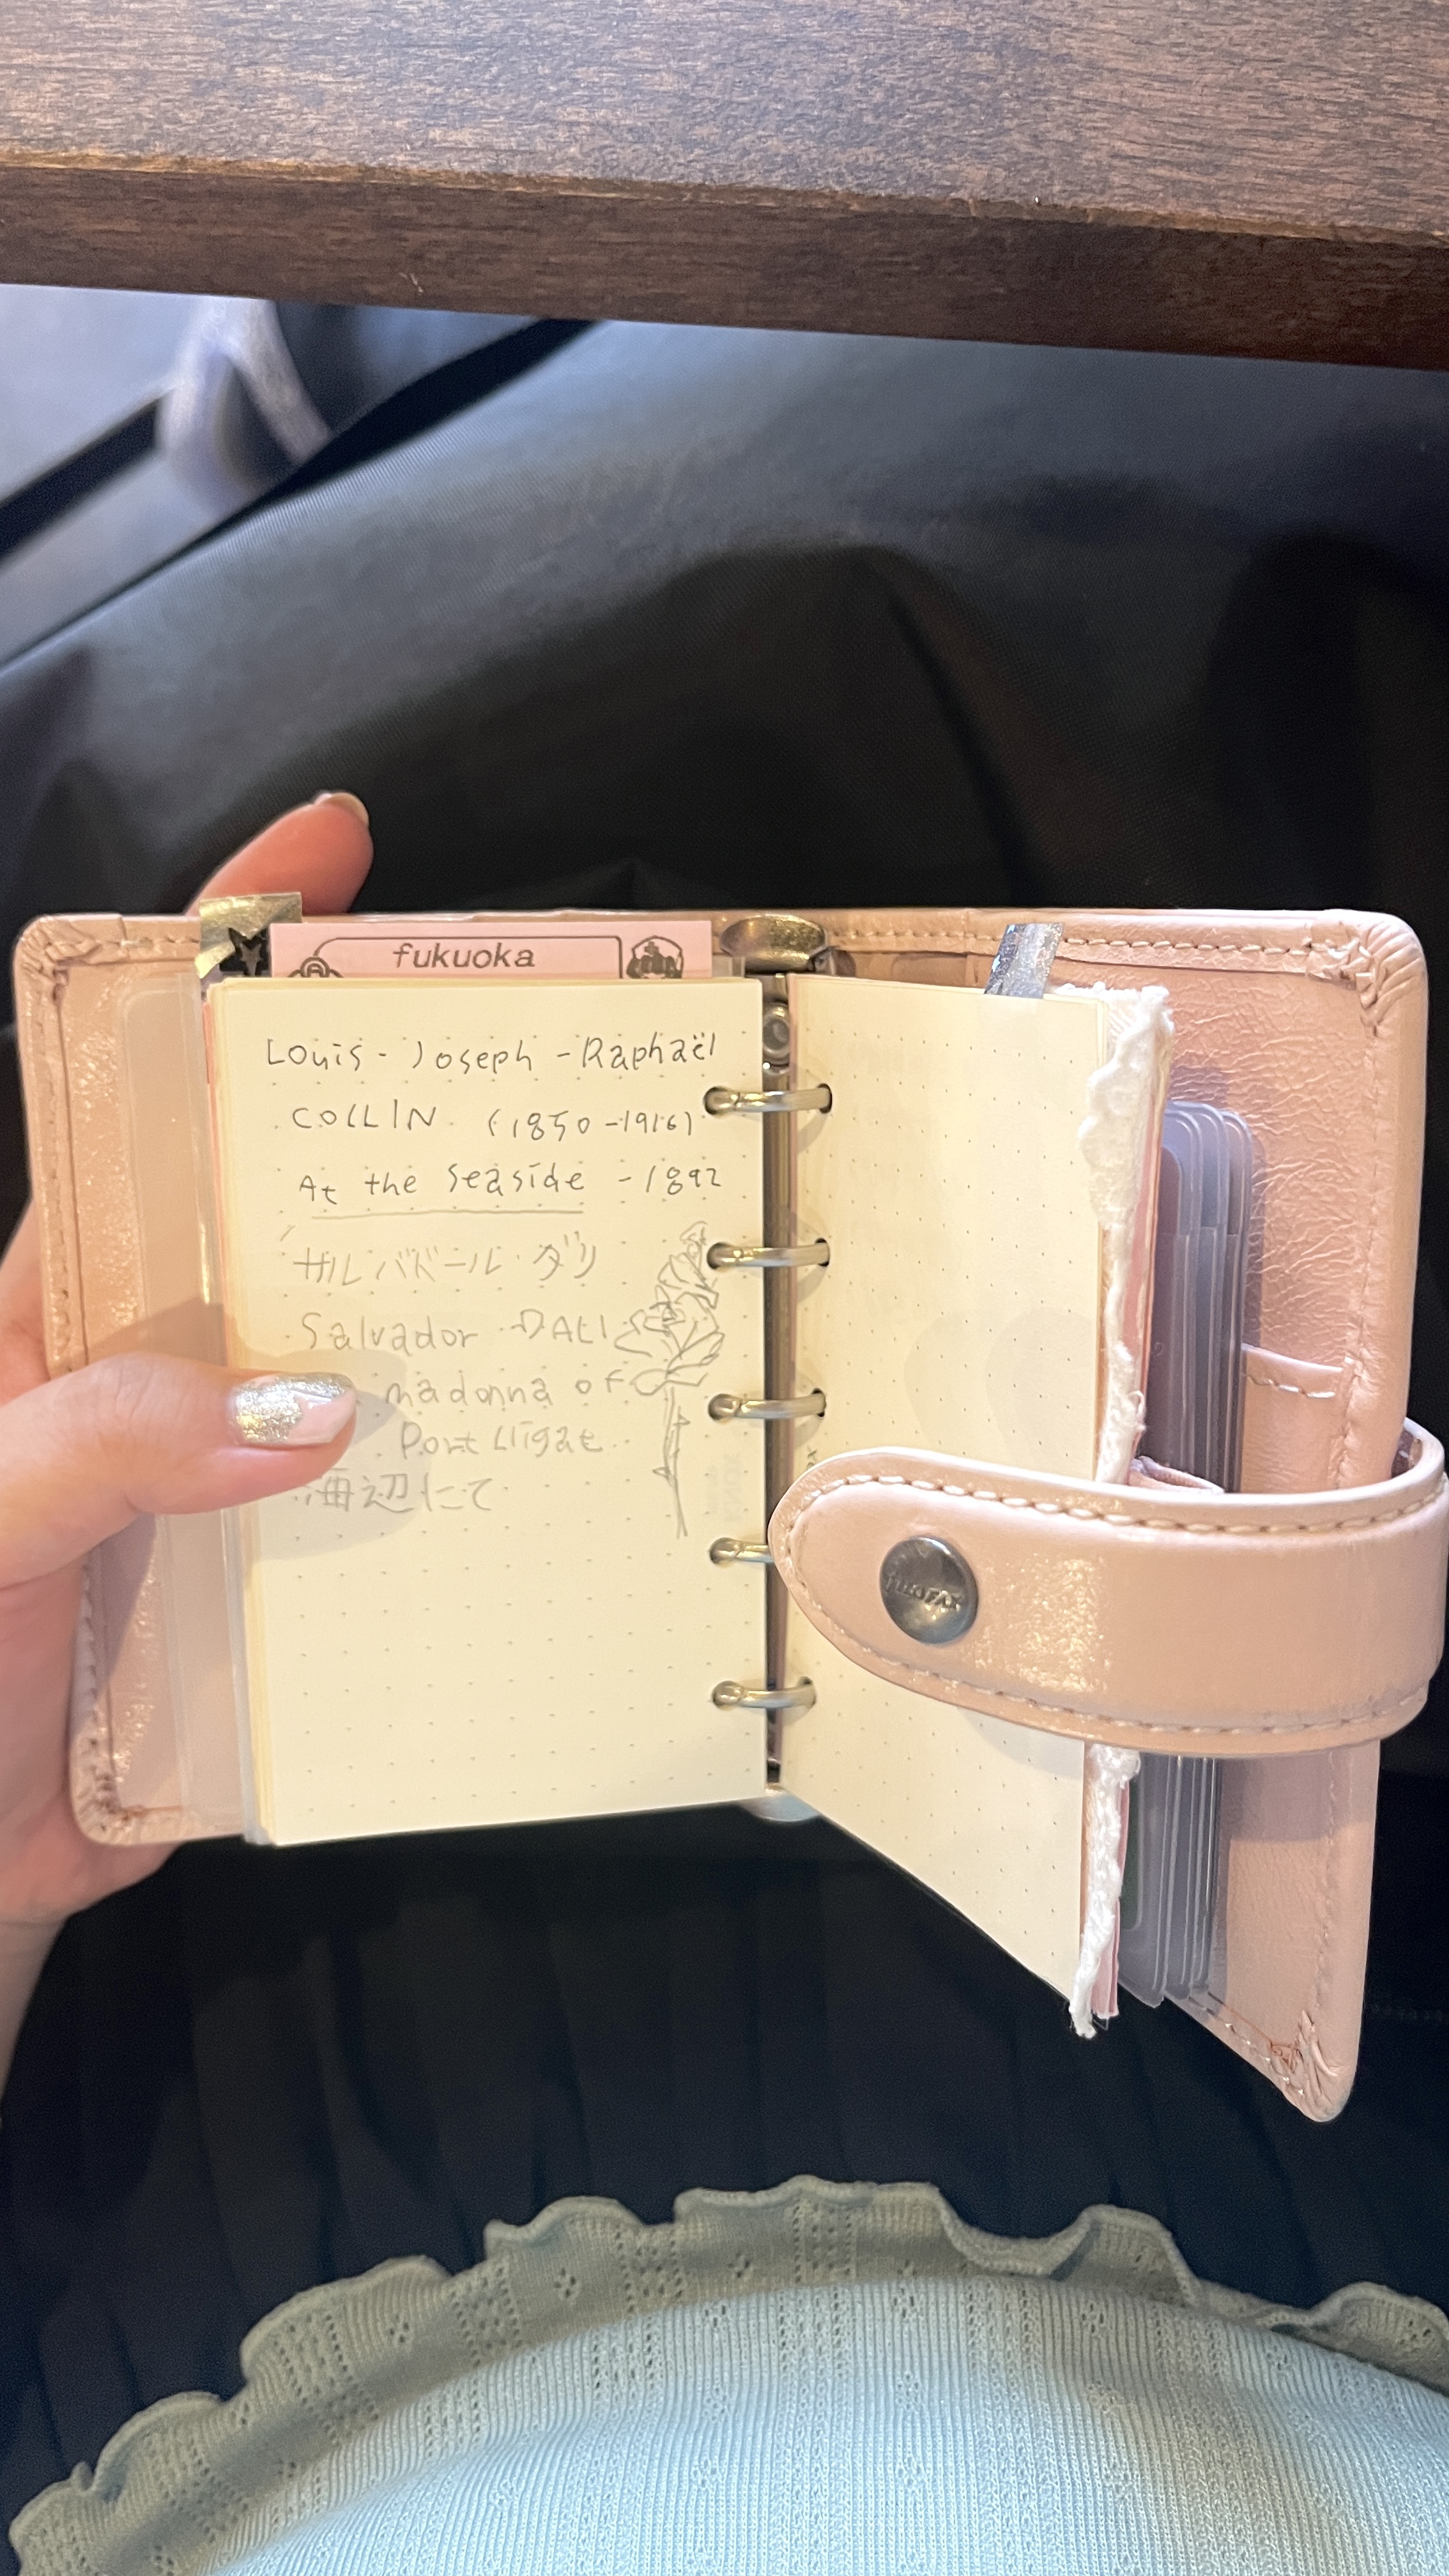 fukuoka
Louis - Joseph - Raphaël
COLLIN (1850-1916)
At the seaside - 1892
サルバドール・ダリ
Salvador DALI
madonna of
Port Lligat
海辺にて
FILOFAX